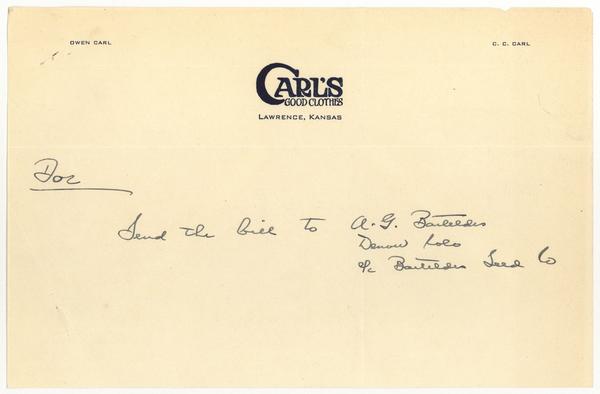 OWEN CARL
C. C. CARL
CARL'S
GOOD CLOTHES
LAWRENCE, KANSAS
Doc
Send the bill to A. G. Barteldes
Denver Colo
c/o Barteldes Seed Co